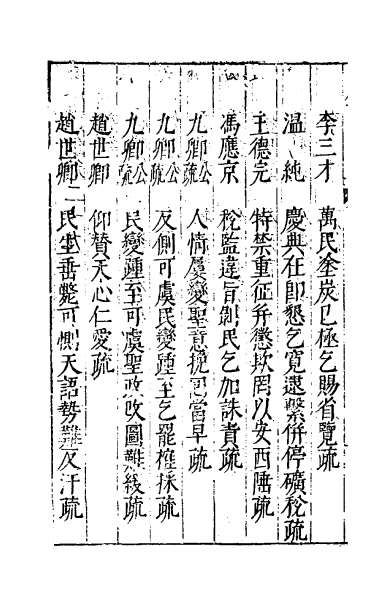 李三才 萬民塗炭已極乞賜省覽疏
溫純 慶典在卽懇乞寬逮繫併停礦稅疏
王德完 特禁重征幷懲欺罔以安西陲疏
馮應京 稅監違旨剝民乞加誅責疏
九卿公疏 人情屢變聖意挽回當早疏
九卿公疏 反側可虞民變踵至乞罷榷採疏
九卿公疏 民變踵至可虞聖政改圖難緩疏
趙世卿 仰贊天心仁愛疏
趙世卿二 民生垂斃可惻天語勢難反汗疏